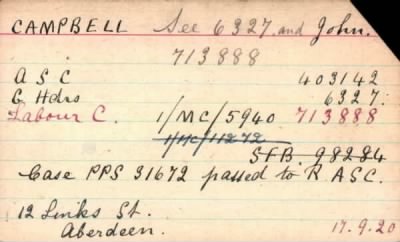 CAMPBELL See 6327 and John.
713888
A S C 403142
G Hdrs 6327.
Labour C. 1/MC/5940 713888
1/MC/11272
SFB. 98284
Case PPS 31672 passed to R ASC.
12 Links St.
Aberdeen. 17.9.20